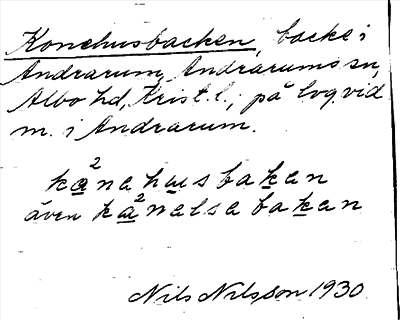 Konehusbacken, backe i
Andrarum, Andrarums sn,
Albo hd, Krist. l.; på Log. vid
m. i Andrarum.
ka²nahusbakan
även ka²nalsabakan
Nils Nilsson 1930